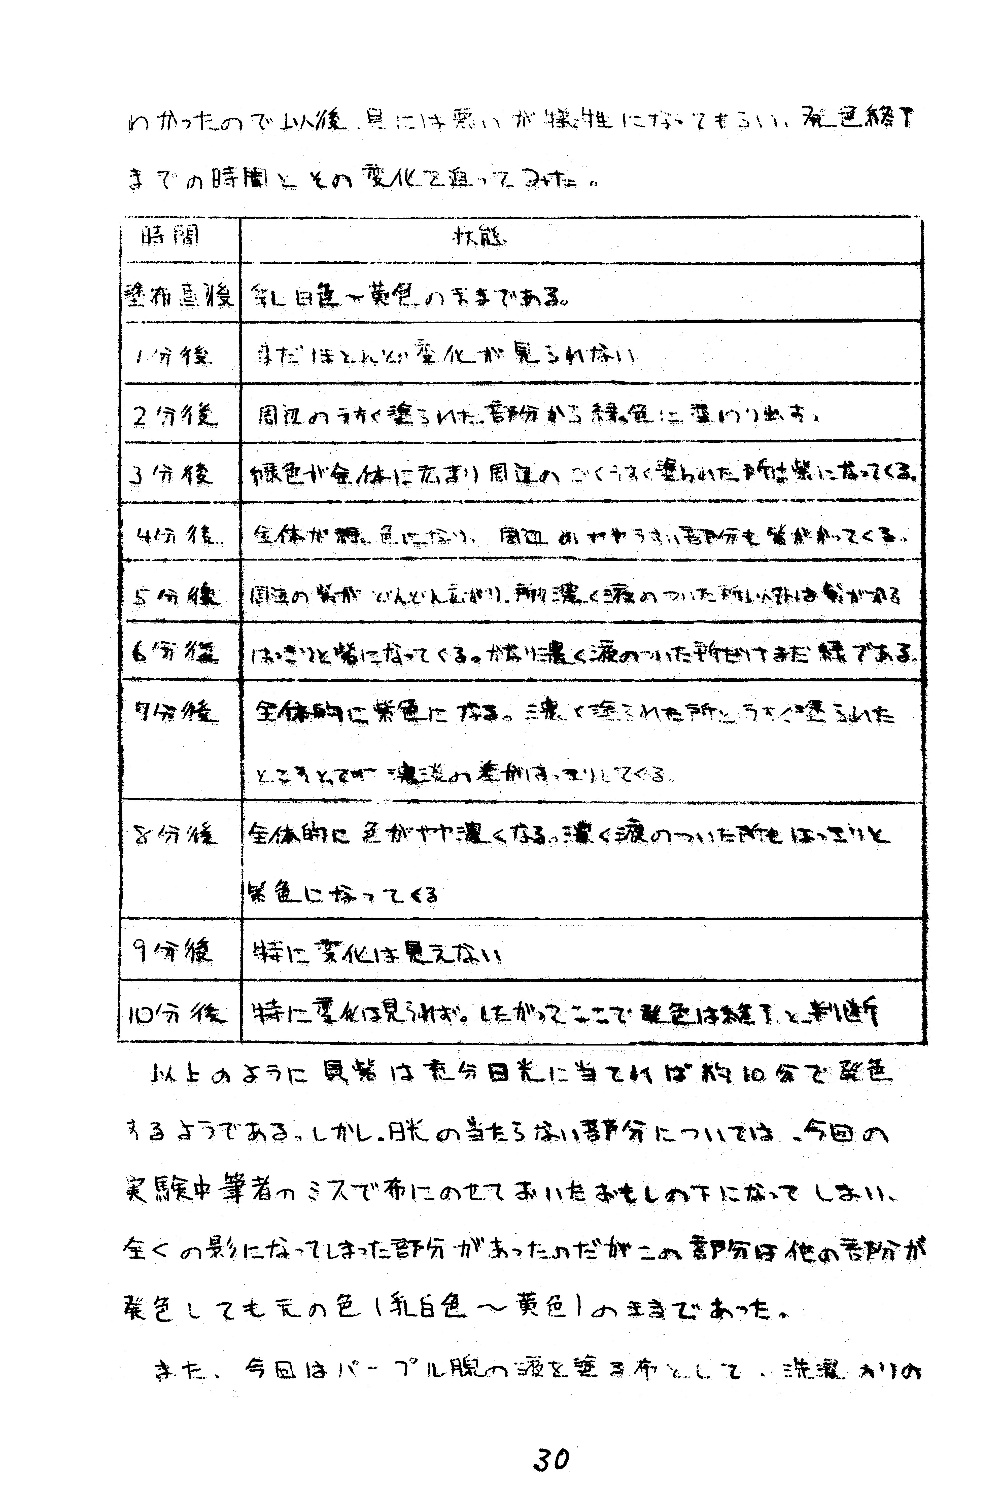 わかったので以後、貝には悪いが犠牲になってもらい、発色終了
までの時間とその変化を追ってみた。
時間 状態
塗布直後 乳白色〜黄色のままである。
1分後 まだほとんど変化が見られない
2分後 周辺のうすく塗られた部分から緑色に変わり出す。
3分後 緑色が全体に広まり周辺のごくうすく塗られた所は紫になってくる。
4分後 全体が緑色になり、周辺のややうすい部分も紫がかってくる。
5分後 周辺の紫がどんどん広がり、特に濃く液のついた所以外は紫がかる
6分後 はっきりと紫になってくる。かなり濃く液のついた所だけまだ緑である。
7分後 全体的に紫色になる。濃く塗られた所とうすく塗られた
ところとで 濃淡の差がはっきりしてくる。
8分後 全体的に色がやや濃くなる。濃く液のついた所もはっきりと
紫色になってくる
9分後 特に変化は見えない
10分後 特に変化は見られず。したがってここで発色は終了と判断
以上のように貝紫は充分日光に当てれば約10分で発色
するようである。しかし、日光の当たらない部分については、今回の
実験中筆者のミスで布にのせておいたおもしの下になってしまい、
全くの影になってしまった部分があったのだがこの部分は他の部分が
発色しても元の色(乳白色〜黄色)のままであった。
また、今回はパープル腺の液を塗る布として、洗濯 かりの
30